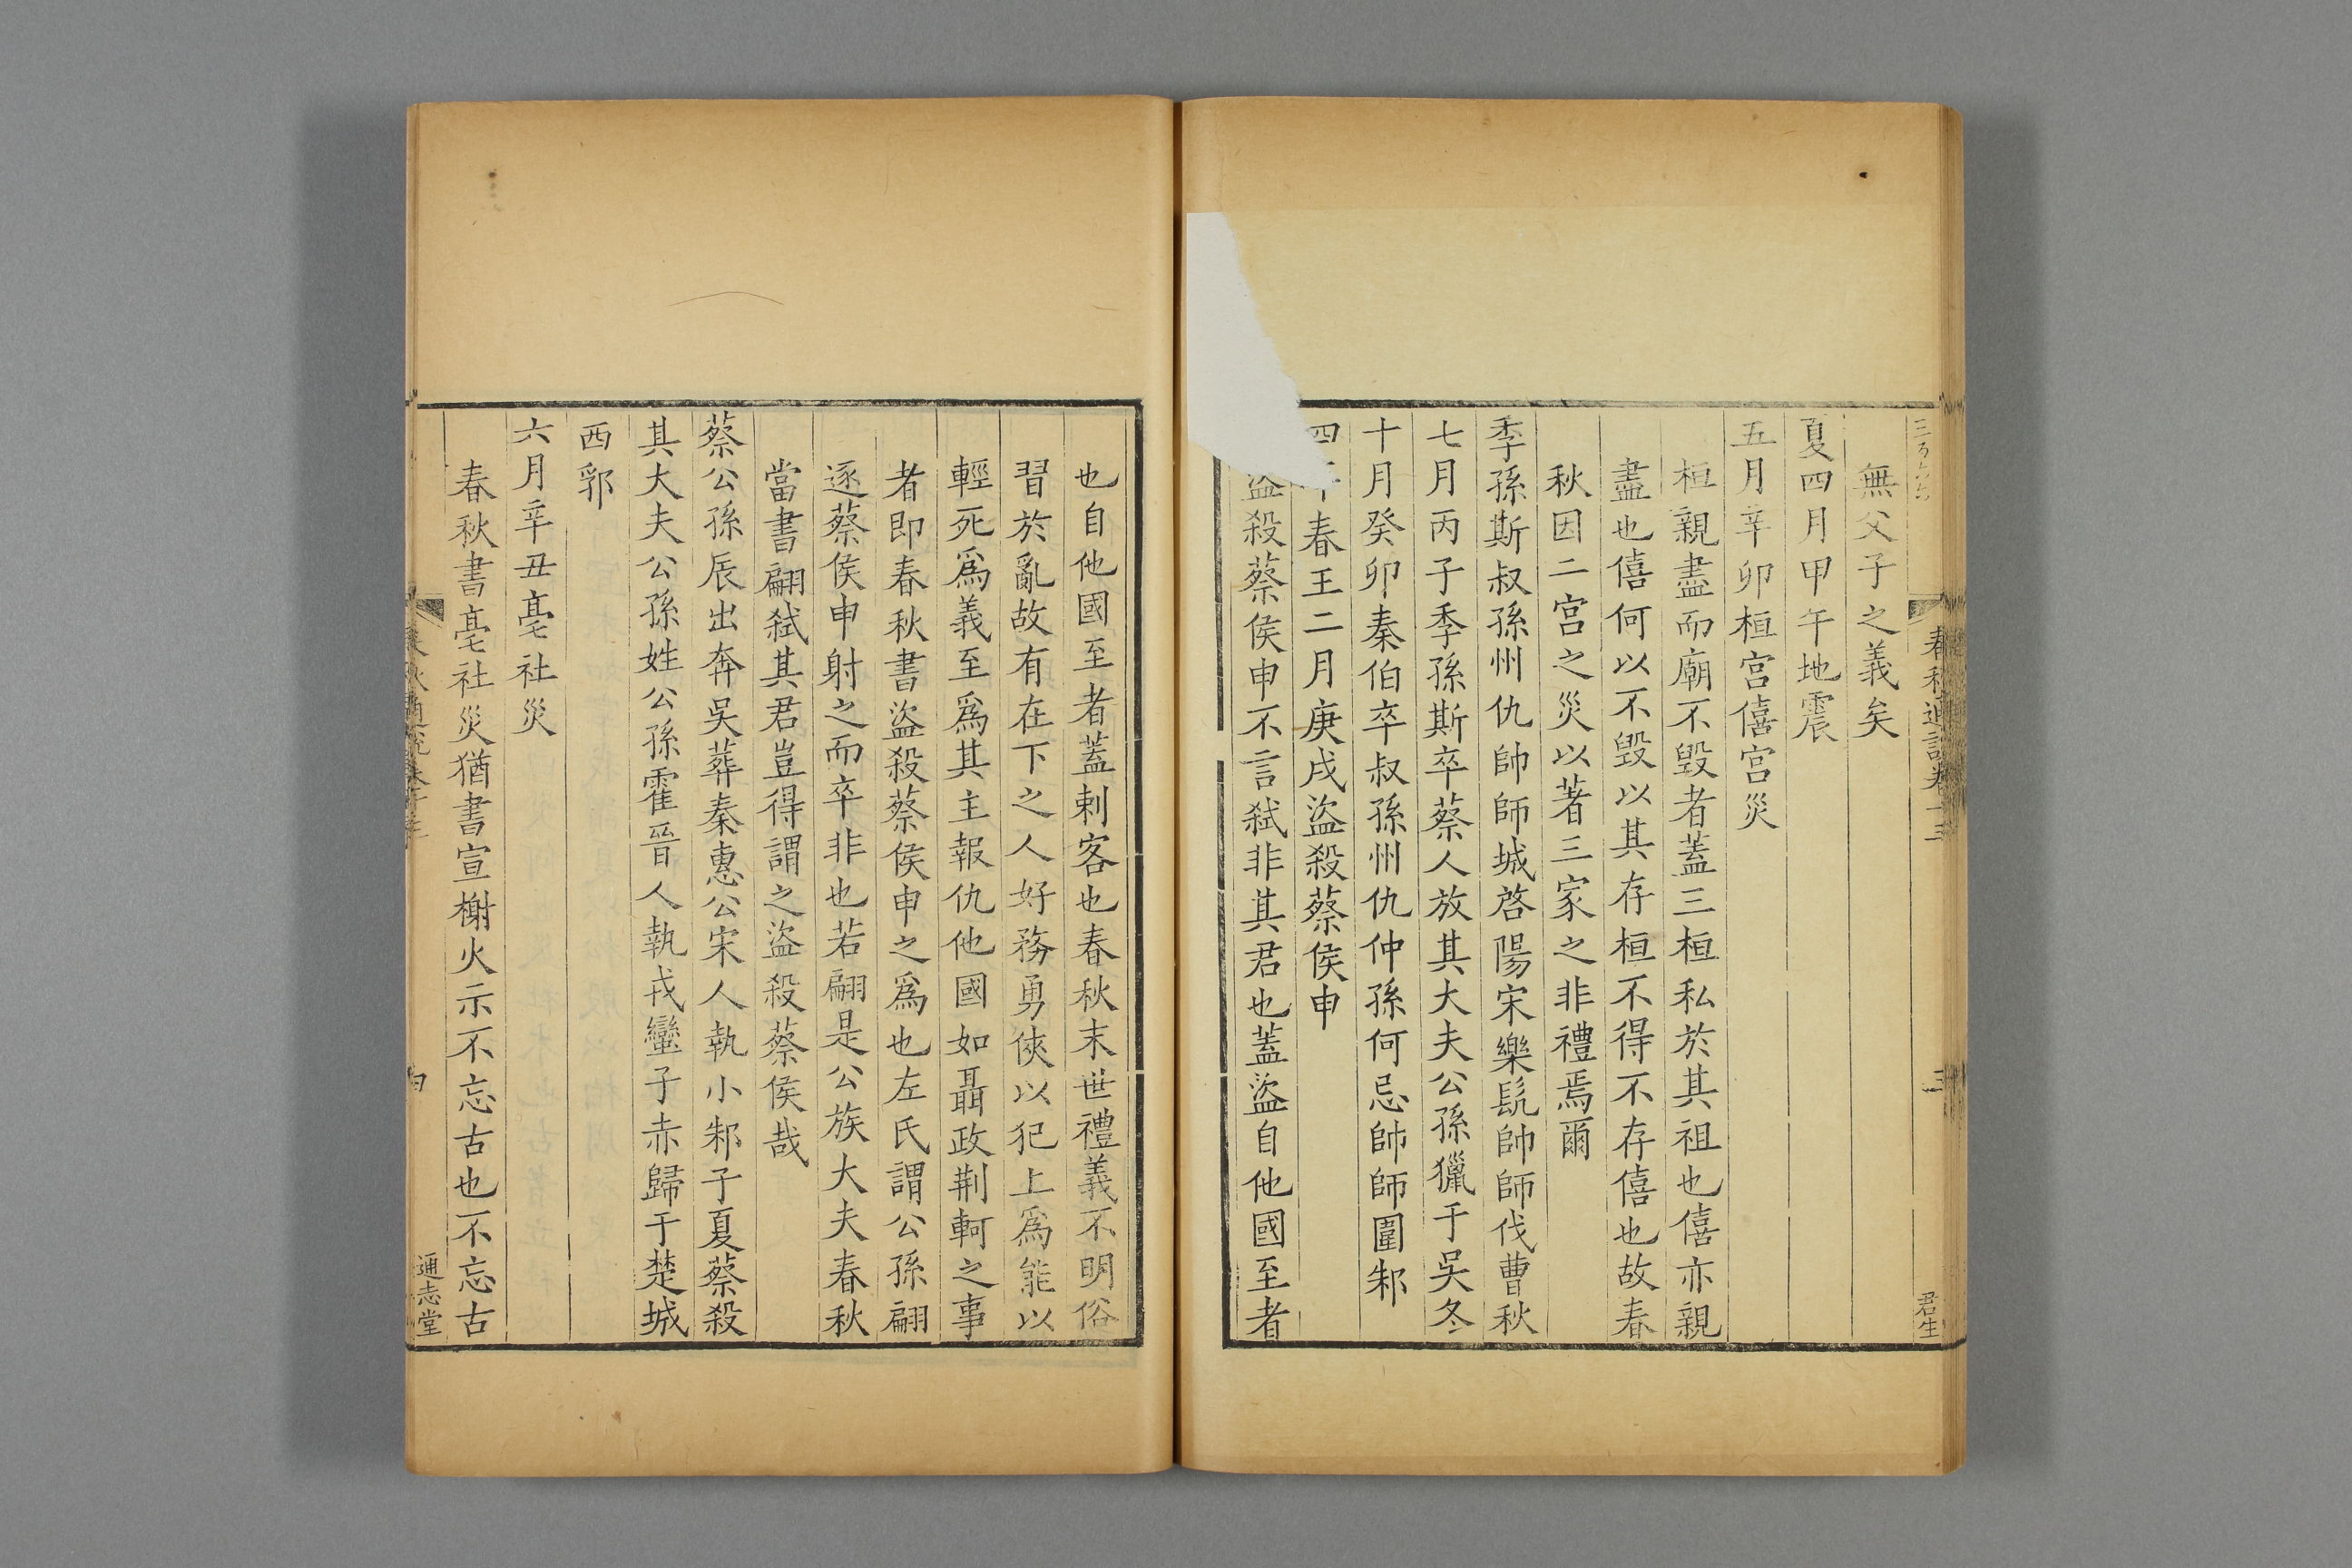 春秋通說卷十三
三
君生
無父子之義矣
夏四月甲午地震
五月辛卯桓宫僖宫災
桓親盡而廟不毀者蓋三桓私於其祖也僖亦親
盡也僖何以不毀以其存桓不得不存僖也故春
秋因二宫之災以著三家之非禮焉爾
季孫斯叔孫州仇帥師城啓陽宋樂髠帥師伐曹秋
七月丙子季孫斯卒蔡人放其大夫公孫獵于吳冬
十月癸卯秦伯卒叔孫州仇仲孫何忌帥師圍邾
四年春王二月庚戌盜殺蔡侯申
盜殺蔡侯申不言弑非其君也蓋盜自他國至者
也自他國至者蓋刺客也春秋末世禮義不明俗
習於亂故有在下之人好務勇俠以犯上爲能以
輕死爲義至爲其主報仇他國如聶政荆軻之事
者即春秋書盜殺蔡侯申之爲也左氏謂公孫翩
逐蔡侯申射之而卒非也若翩是公族大夫春秋
當書翩弑其君豈得謂之盜殺蔡侯哉
蔡公孫辰出奔吳葬秦惠公宋人執小邾子夏蔡殺
其大夫公孫姓公孫霍晉人執戎蠻子赤歸于楚城
西郛
六月辛丑亳社災
春秋書亳社災猶書宣榭火示不忘古也不忘古
通志堂